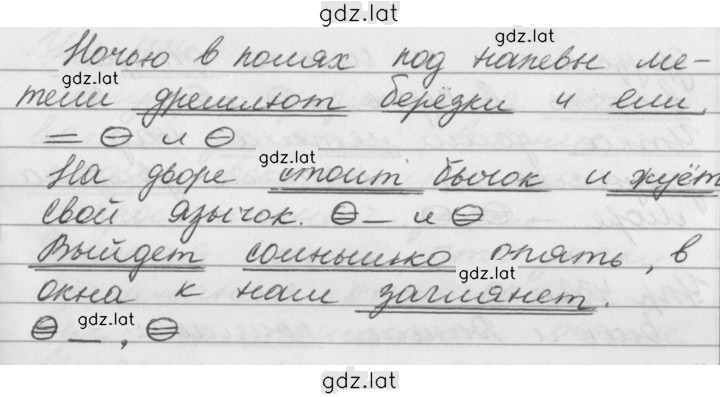 gdz.lat
Ночью в полях под напевы ме-
gdz.lat
тели дремлют берёзки и ели.
и
gdz.lat
На дворе стоит бычок и жуёт
свой язычок. и
Выйдет солнышко опять, в
gdz.lat
окна к нам заглянет.
gdz.lat
,
gdz.lat